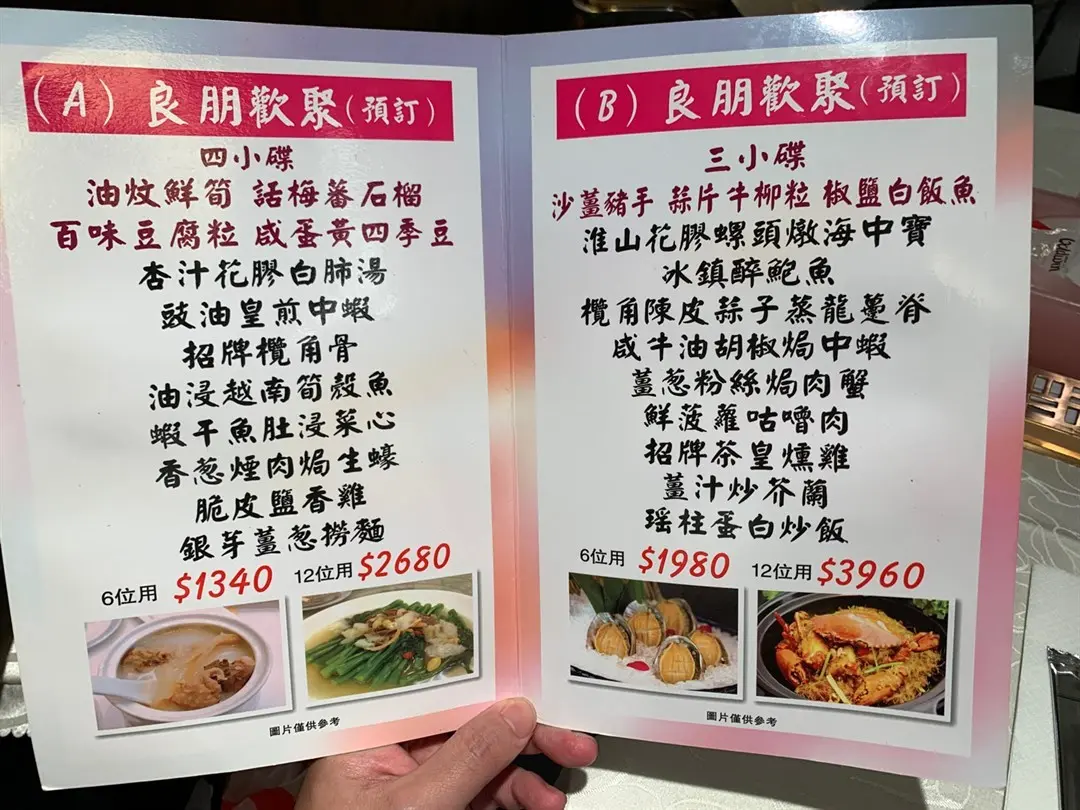 (A) 良朋歡聚(預訂)
四小碟
油炆鮮筍 話梅蕃石榴
百味豆腐粒 咸蛋黃四季豆
杏汁花膠白肺湯
豉油皇煎中蝦
招牌欖角骨
油浸越南筍殼魚
蝦干魚肚浸菜心
香葱煙肉焗生蠔
脆皮鹽香雞
銀芽薑葱撈麵
6位用 $1340 12位用 $2680
圖片僅供參考
(B) 良朋歡聚(預訂)
三小碟
沙薑豬手 蒜片牛柳粒 椒鹽白飯魚
淮山花膠螺頭燉海中寶
冰鎮醉鮑魚
欖角陳皮蒜子蒸龍躉脊
咸牛油胡椒焗中蝦
薑葱粉絲焗肉蟹
鮮菠蘿咕嚕肉
招牌茶皇燻雞
薑汁炒芥蘭
瑶柱蛋白炒飯
6位用 $1980 12位用 $3960
圖片僅供參考